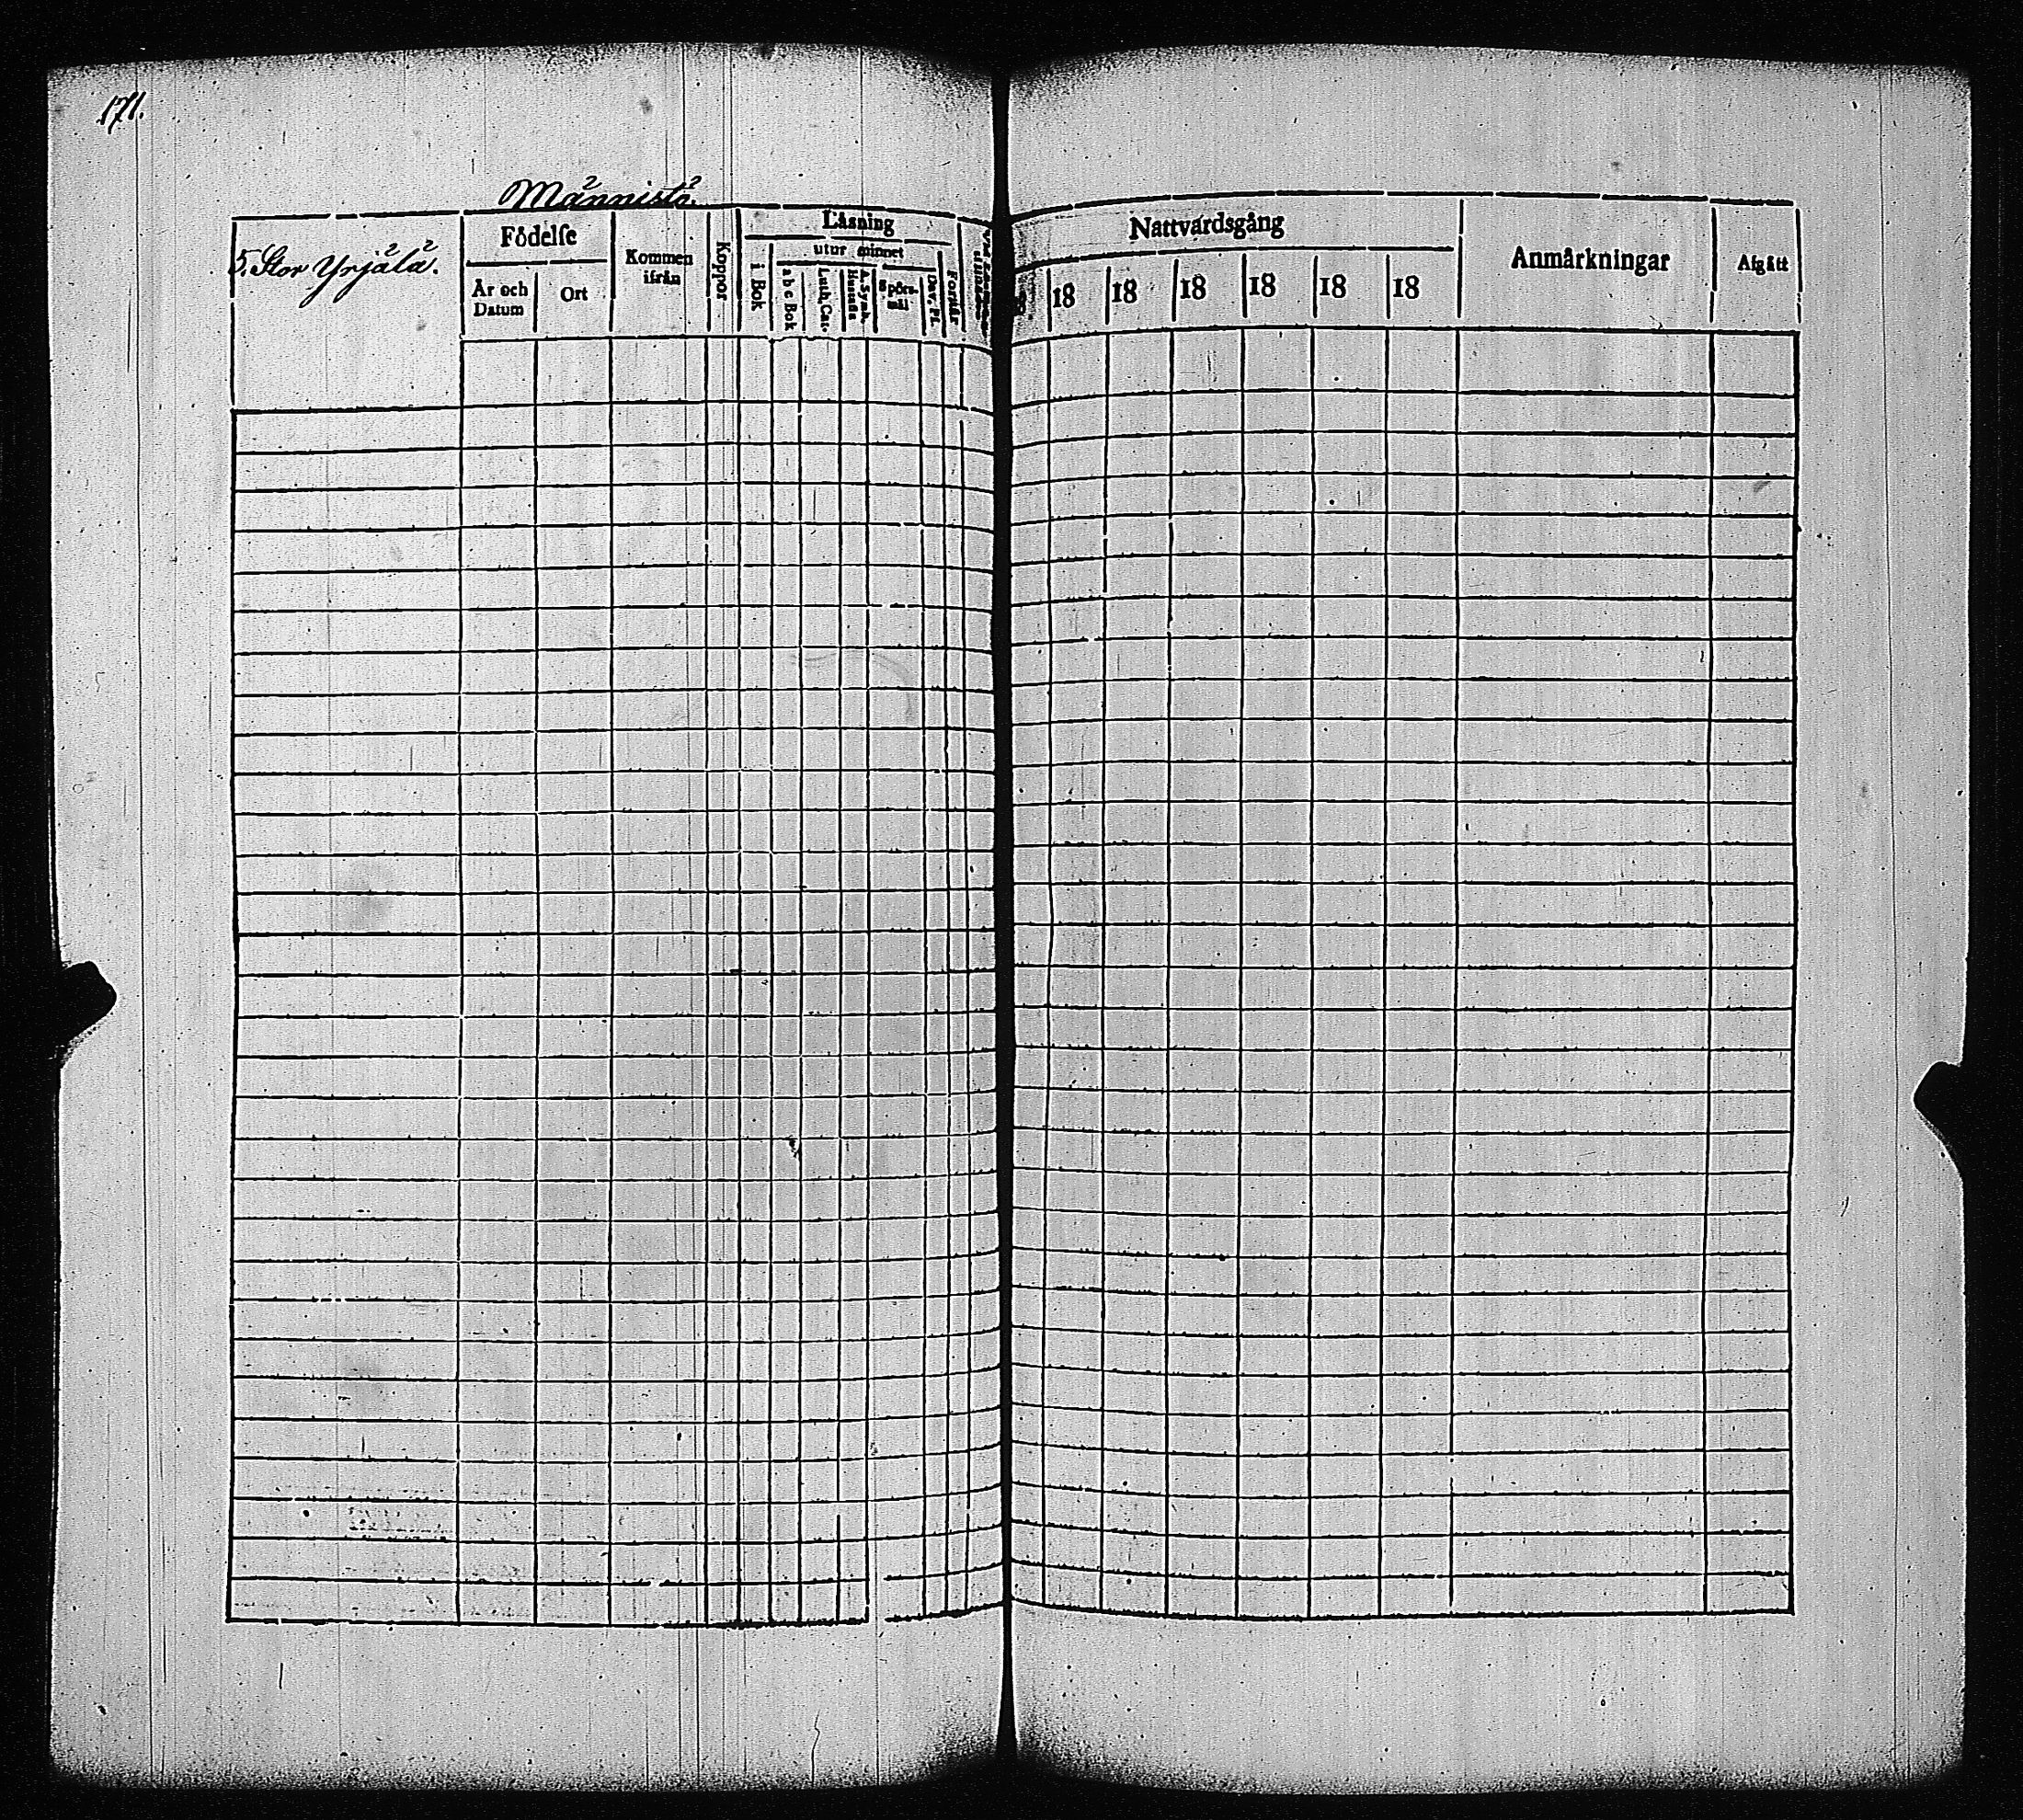 171.
Männistö.
5. Stor Yrjälä.
Födelse
År och Datum
Ort
Kommen ifrån
Koppor
Läsning
i Bok
utur minnet
a b c Bok
Luth. Cat.
A. Symb. Hustafla
Spörsmål
Dav. Ps.
Förstår
Nattvardsgång
18 18 18 18 18 18
Anmärkningar
Afgått